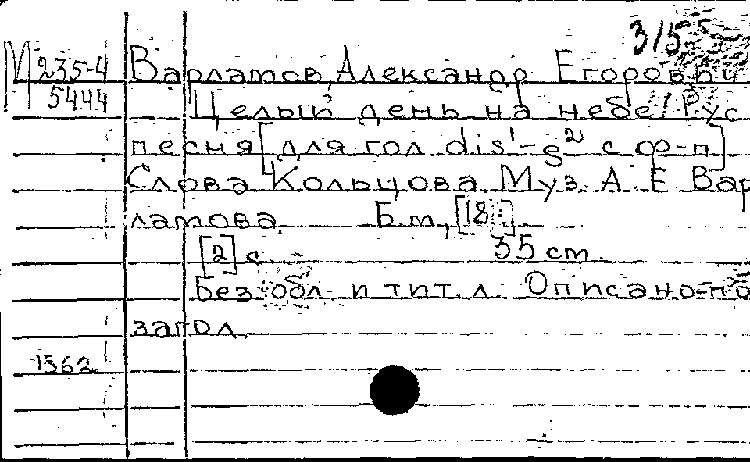 315
М 235-4 Варлатов, Александр Егорович
5444 Целый день на небе / Рус
песня [для гол dis¹-s² с ф-п]
Слова Кольцова Муз. А. Е Вар
латова Б.м., [18..].
[2] с 35 cm.
Без обл и тит. л. Описано по
загол.
1362